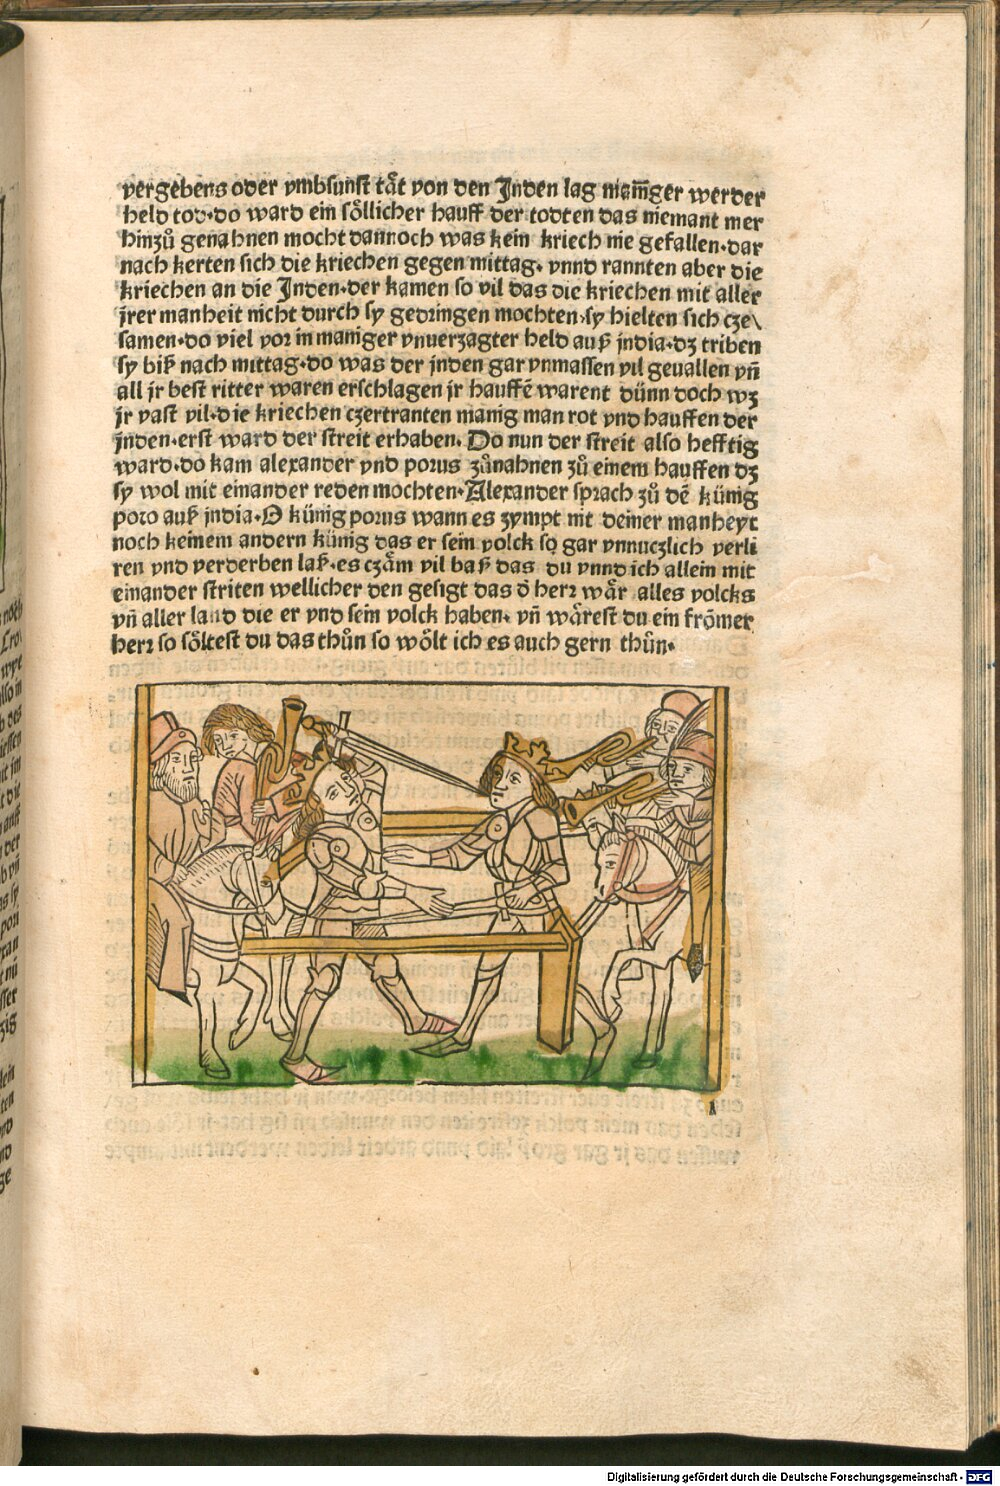 vergebens oder vmbsunst tåt von den Jnden lag manger werder
held tod·do ward ein söllicher hauff der todten das niemant mer
hinzů genahnen mocht dannoch was kein kriech nie gefallen·dar
nach kerten sich die kriechen gegen mittag· vnnd rannten aber die
kriechen an die Jnden·der kamen so vil das die kriechen mit aller
jrer manheit nicht durch sy gedringen mochten·sy hielten sich cze\
samen·do viel vor in maniger vnuerzagter held auß india·dz triben
sy biß nach mittag·do was der jnden gar vnmassen vil geuallen vñ
all jr best ritter waren erschlagen jr hauffē warent dünn doch wz
jr vast vil·die kriechen czertranten manig man rot vnd hauffen der
jnden·erst ward der streit erhaben· Do nun der streit also hefftig
ward·do kam alexander vnd porus zůnahnen zů einem hauffen dz
sy wol mit einander reden mochten·Alexander sprach zů dē künig
poro auß india·O künig porus wann es zympt nit deiner manheyt
noch keinem andern künig das er sein volck so gar vnnuczlich verli
ren vnd verderben laß·es czåm vil baß das du vnnd ich allein mit
einander striten wellicher den gesigt das d̄ herr wår alles volcks
vñ aller land die er vnd sein volck haben· vñ wårest du ein frömer
herr so söltest du das thůn so wölt ich es auch gern thůn·
Digitalisierung gefördert durch die Deutsche Forschungsgemeinschaft - DFG